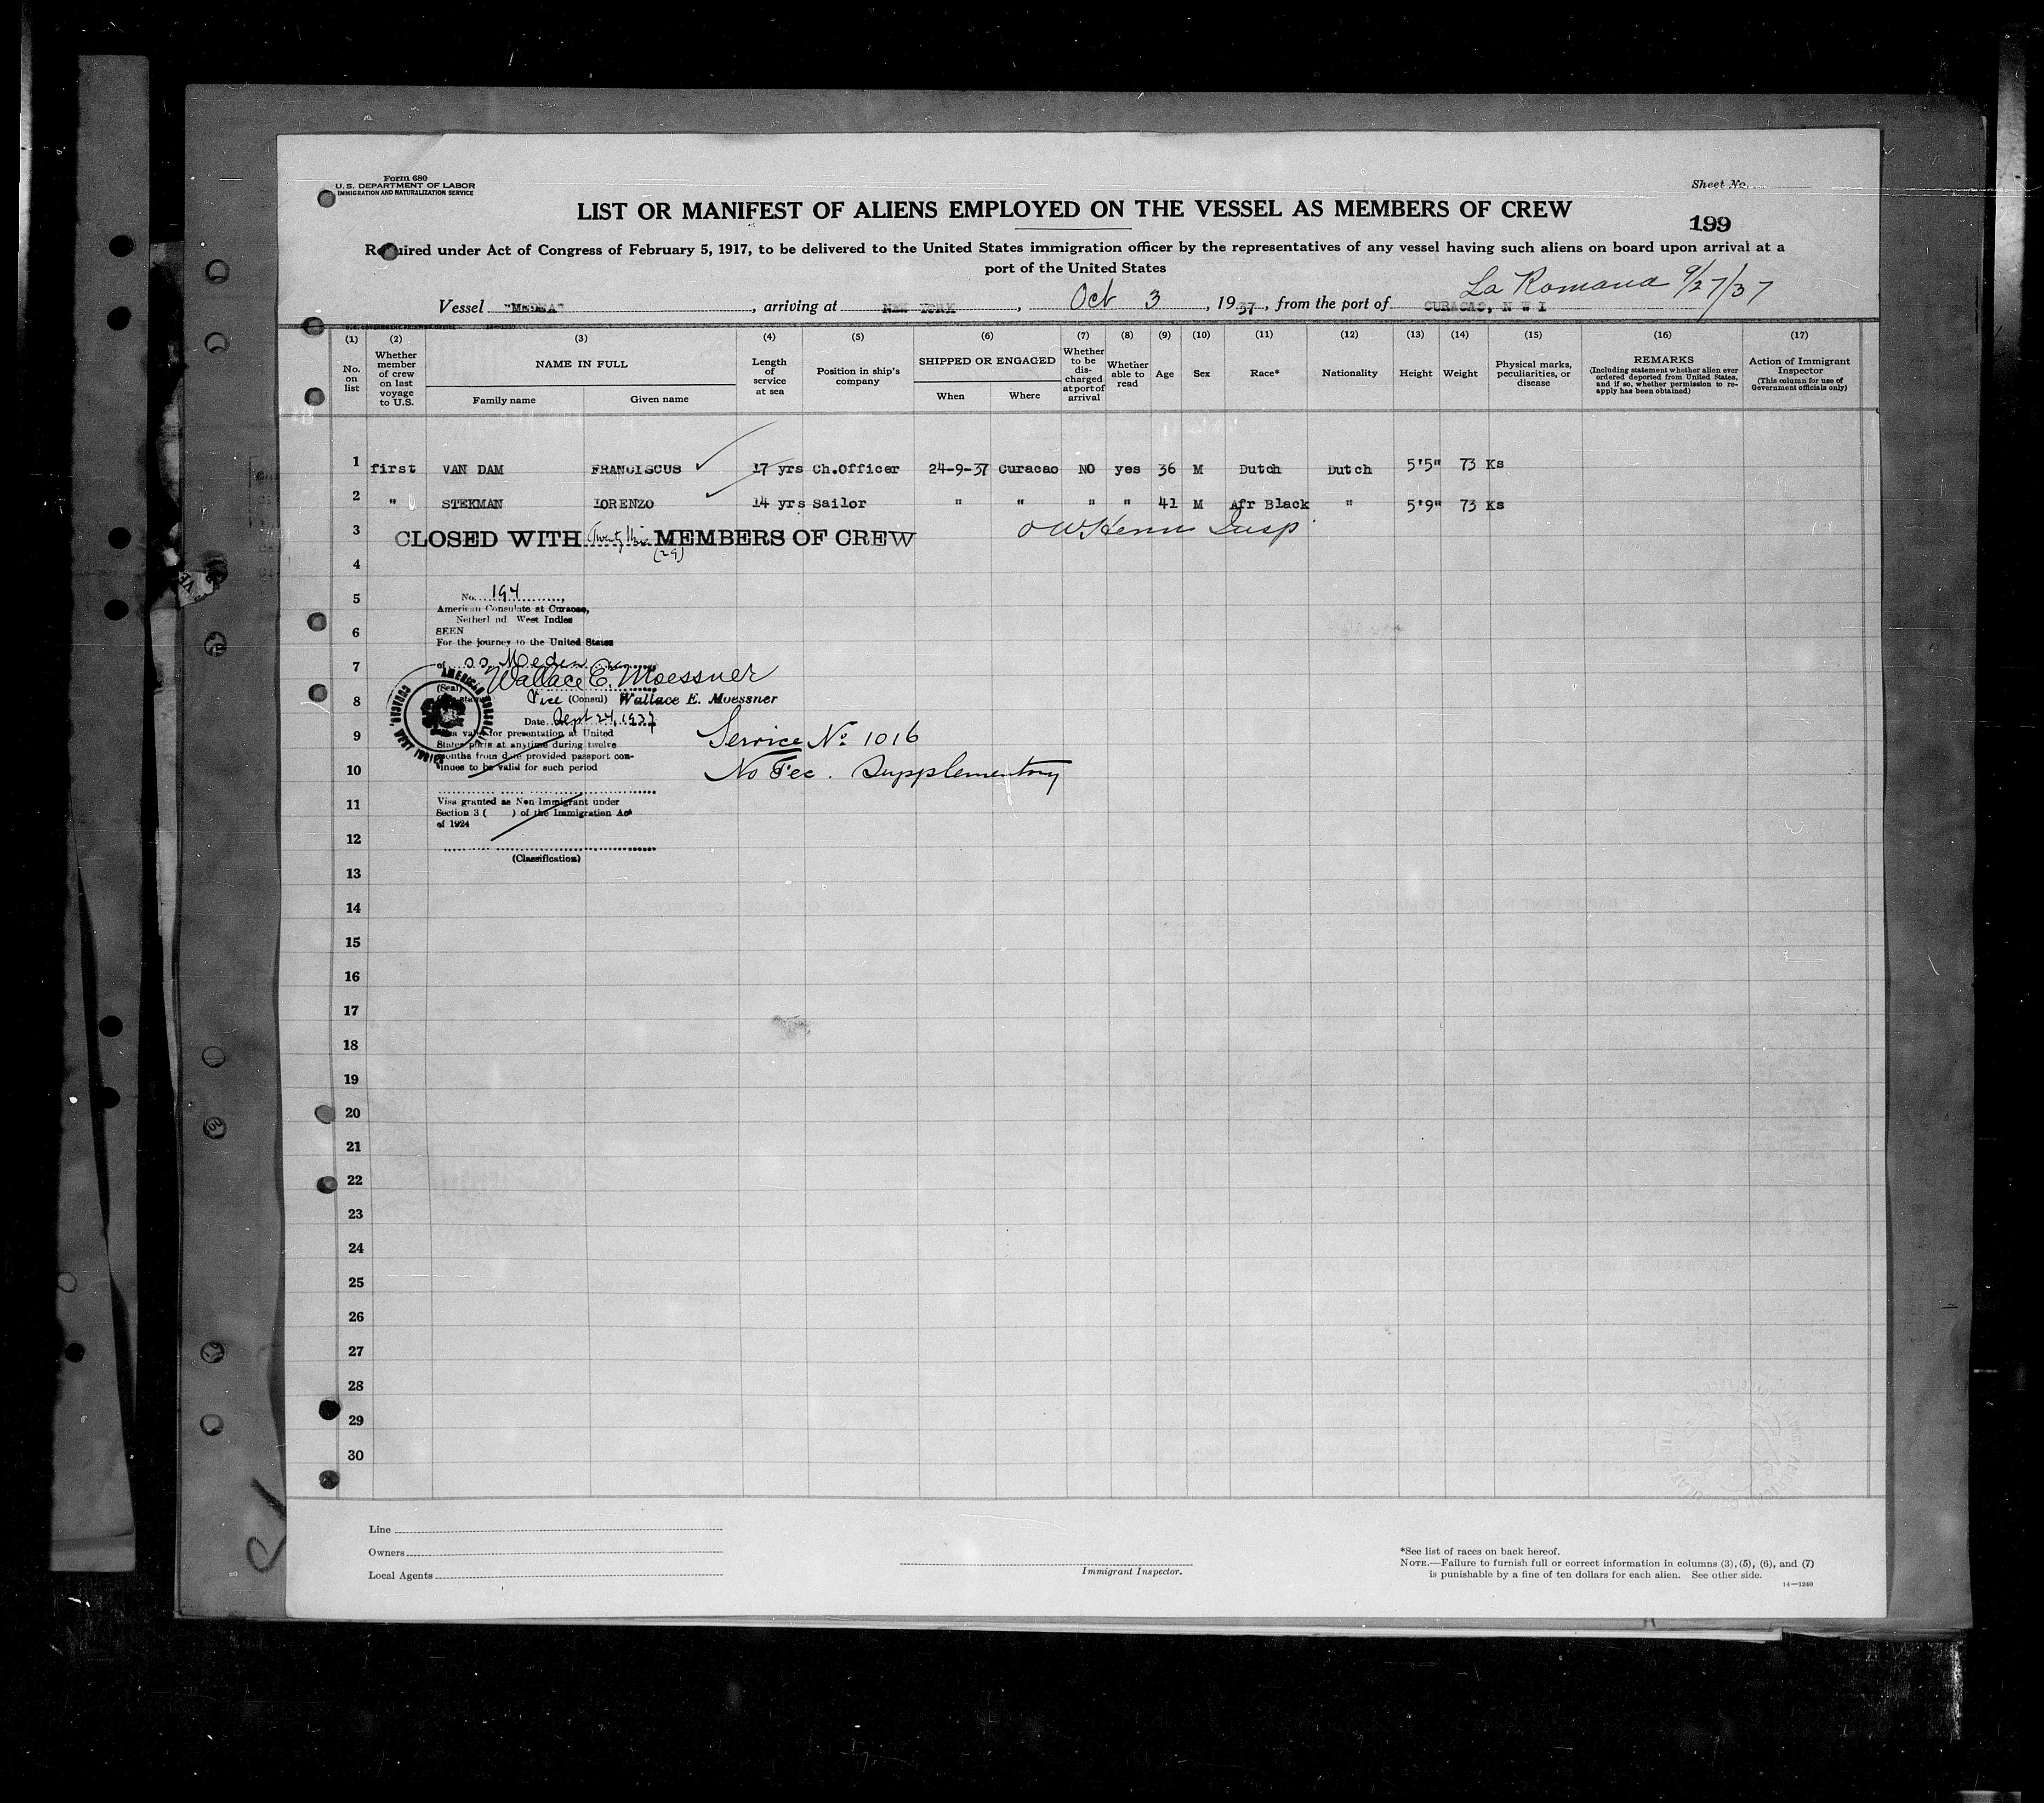 Form 680
U.S. DEPARTMENT OF LABOR
IMMIGRATION AND NATURALIZATION SERVICE
Sheet No.
LIST OR MANIFEST OF ALIENS EMPLOYED ON THE VESSEL AS MEMBERS OF CREW
199
Required under Act of Congress of February 5, 1917, to be delivered to the United States immigration officer by the representatives of any vessel having such aliens on board upon arrival at a
port of the United States
La Romana 9/27/37
Vessel "MEDEA", arriving at NEW YORK, Oct 3, 1937, from the port of CURACAO, N W I
(1) (2) (3) (4) (5) (6) (7) (8) (9) (10) (11) (12) (13) (14) (15) (16) (17)
No. on list
Whether member of crew on last voyage to U.S.
NAME IN FULL
Family name Given name
Length of service at sea
Position in ship's company
SHIPPED OR ENGAGED
When Where
Whether to be discharged at port of arrival
Whether able to read
Age
Sex
Race*
Nationality
Height
Weight
Physical marks, peculiarities, or disease
REMARKS
(Including statement whether alien ever ordered deported from United States, and if so, whether permission to reapply has been obtained)
Action of Immigrant Inspector
(This column for use of Government officials only)
1 first VAN DAM FRANCISCUS 17 yrs Ch.Officer 24-9-37 Curacao NO yes 36 M Dutch Dutch 5'5" 73 Ks
2 " STEKMAN LORENZO 14 yrs Sailor " " " " 41 M Afr Black " 5'9" 73 Ks
3 CLOSED WITH Twenty MEMBERS OF CREW
(29)
Insp
4
5 No. 194,
American Consulate at Curacao,
Netherland West Indies
6 SEEN
For the journey to the United States
7 of s.s. Medea
Wallace E. Moessner
(Seal)
8 Vice (Consul) Wallace E. Moessner
AMERICAN CONSULATE
CURACAO, WEST INDIES
Date Sept 24, 1937
9 Visa valid for presentation at United
States ports at anytime during twelve
months from date provided passport con-
10 tinues to be valid for such period
Service No 1016
No Fee. Supplementary
11 Visa granted as Non-Immigrant under
Section 3 ( ) of the Immigration Act
of 1924
12
(Classification)
13
14
15
16
17
18
19
20
21
22
23
24
25
26
27
28
29
30
Line
Owners
Local Agents
Immigrant Inspector.
*See list of races on back hereof.
NOTE.—Failure to furnish full or correct information in columns (3), (5), (6), and (7)
is punishable by a fine of ten dollars for each alien. See other side.
14—1240